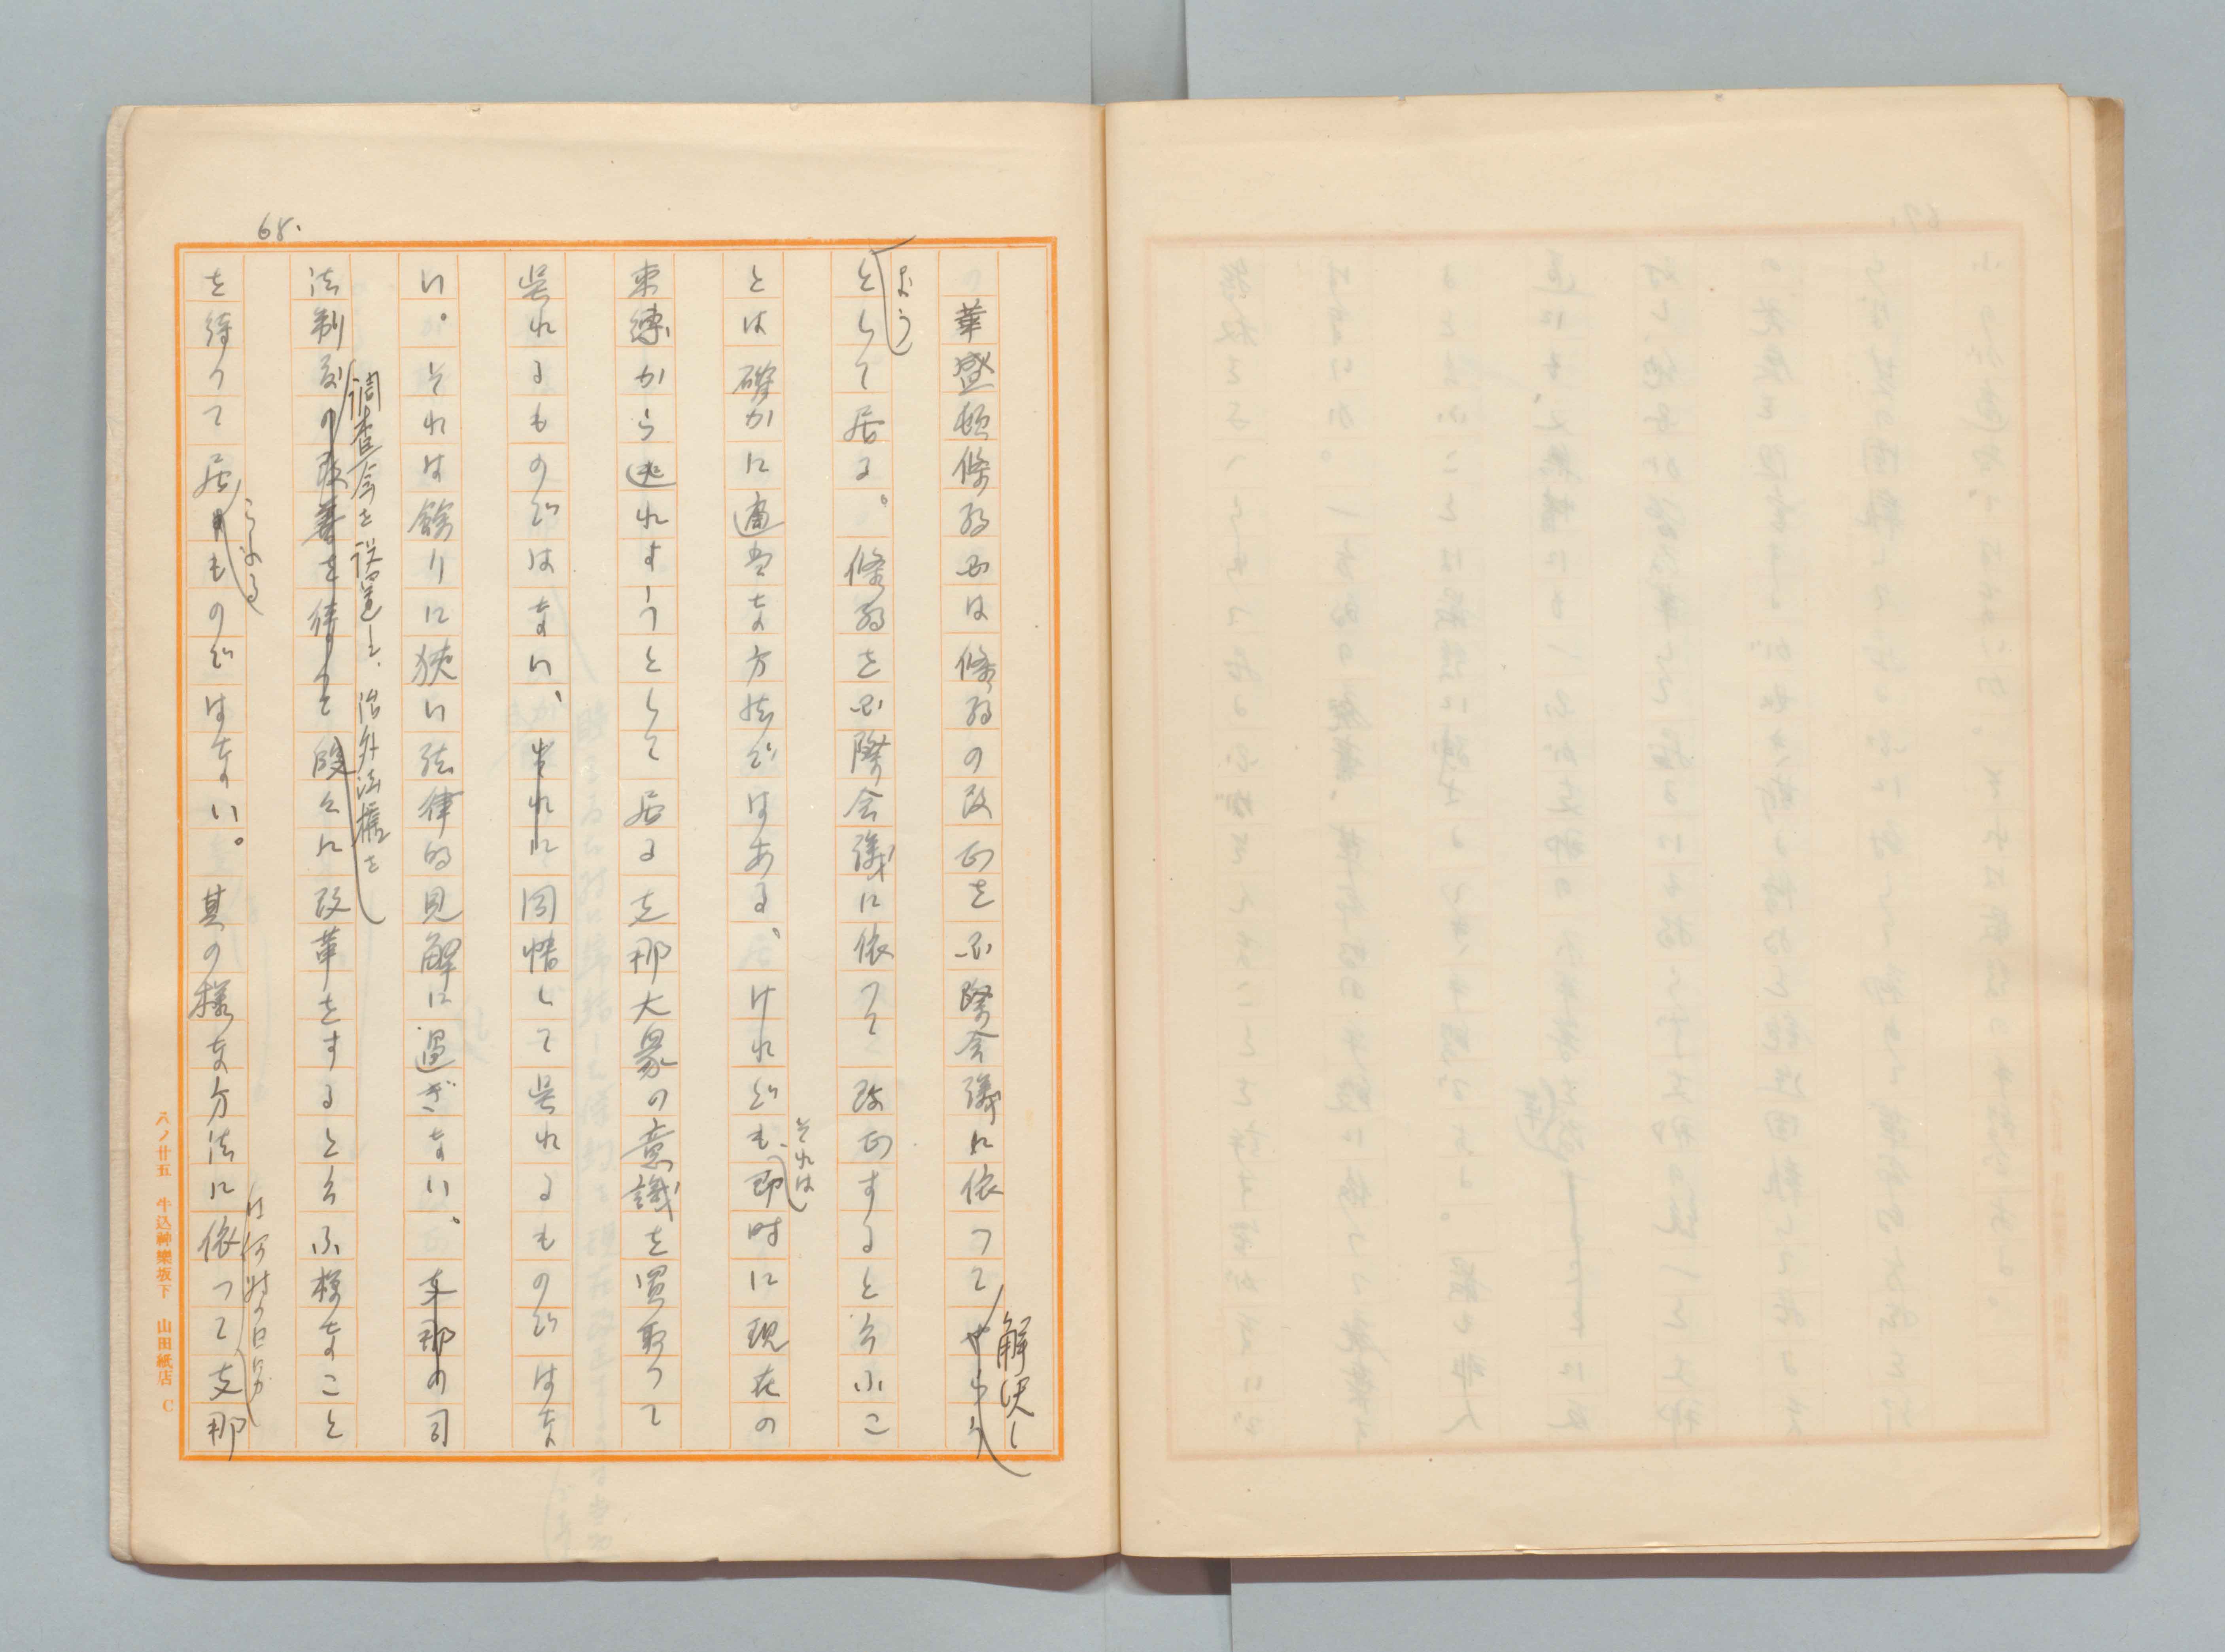 68.
華盛頓條約國は條約の改正を國際会議に依つてやらう
解決し
よう
として居る。條約を國際会議に依つて改正すると云ふこ
とは確かに適当な方法ではある、けれども、即時に現在の
それは
束縛から逃れようとして居る支那大衆の意識を買取つて
呉れるものではない、それに同情して呉れるものではな
い。それは餘りに狹い法律的見解に過ぎない、支那の司
法制度の改善を待つて段々に改革をすると云ふ様なこと
調査会を設置し、治外法權を
を待つて居るものではない。其の様な方法に依つて支那
られる
は何時の日にか
八ノ廿五 牛込神樂坂下 山田紙店 C